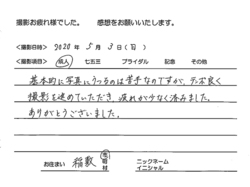 撮影お疲れ様でした。 感想をお願いいたします。
<撮影日時> 2020 年 5 月 3 日(日)
<撮影項目> 成人 七五三 ブライダル 記念 その他
基本的に写真にうつるのは苦手なのですが、テンポ良く
撮影を進めていただき、疲れが少なく済みました。
ありがとうございました。
お住まい 稲敷 市 町 村 ニックネーム
イニシャル